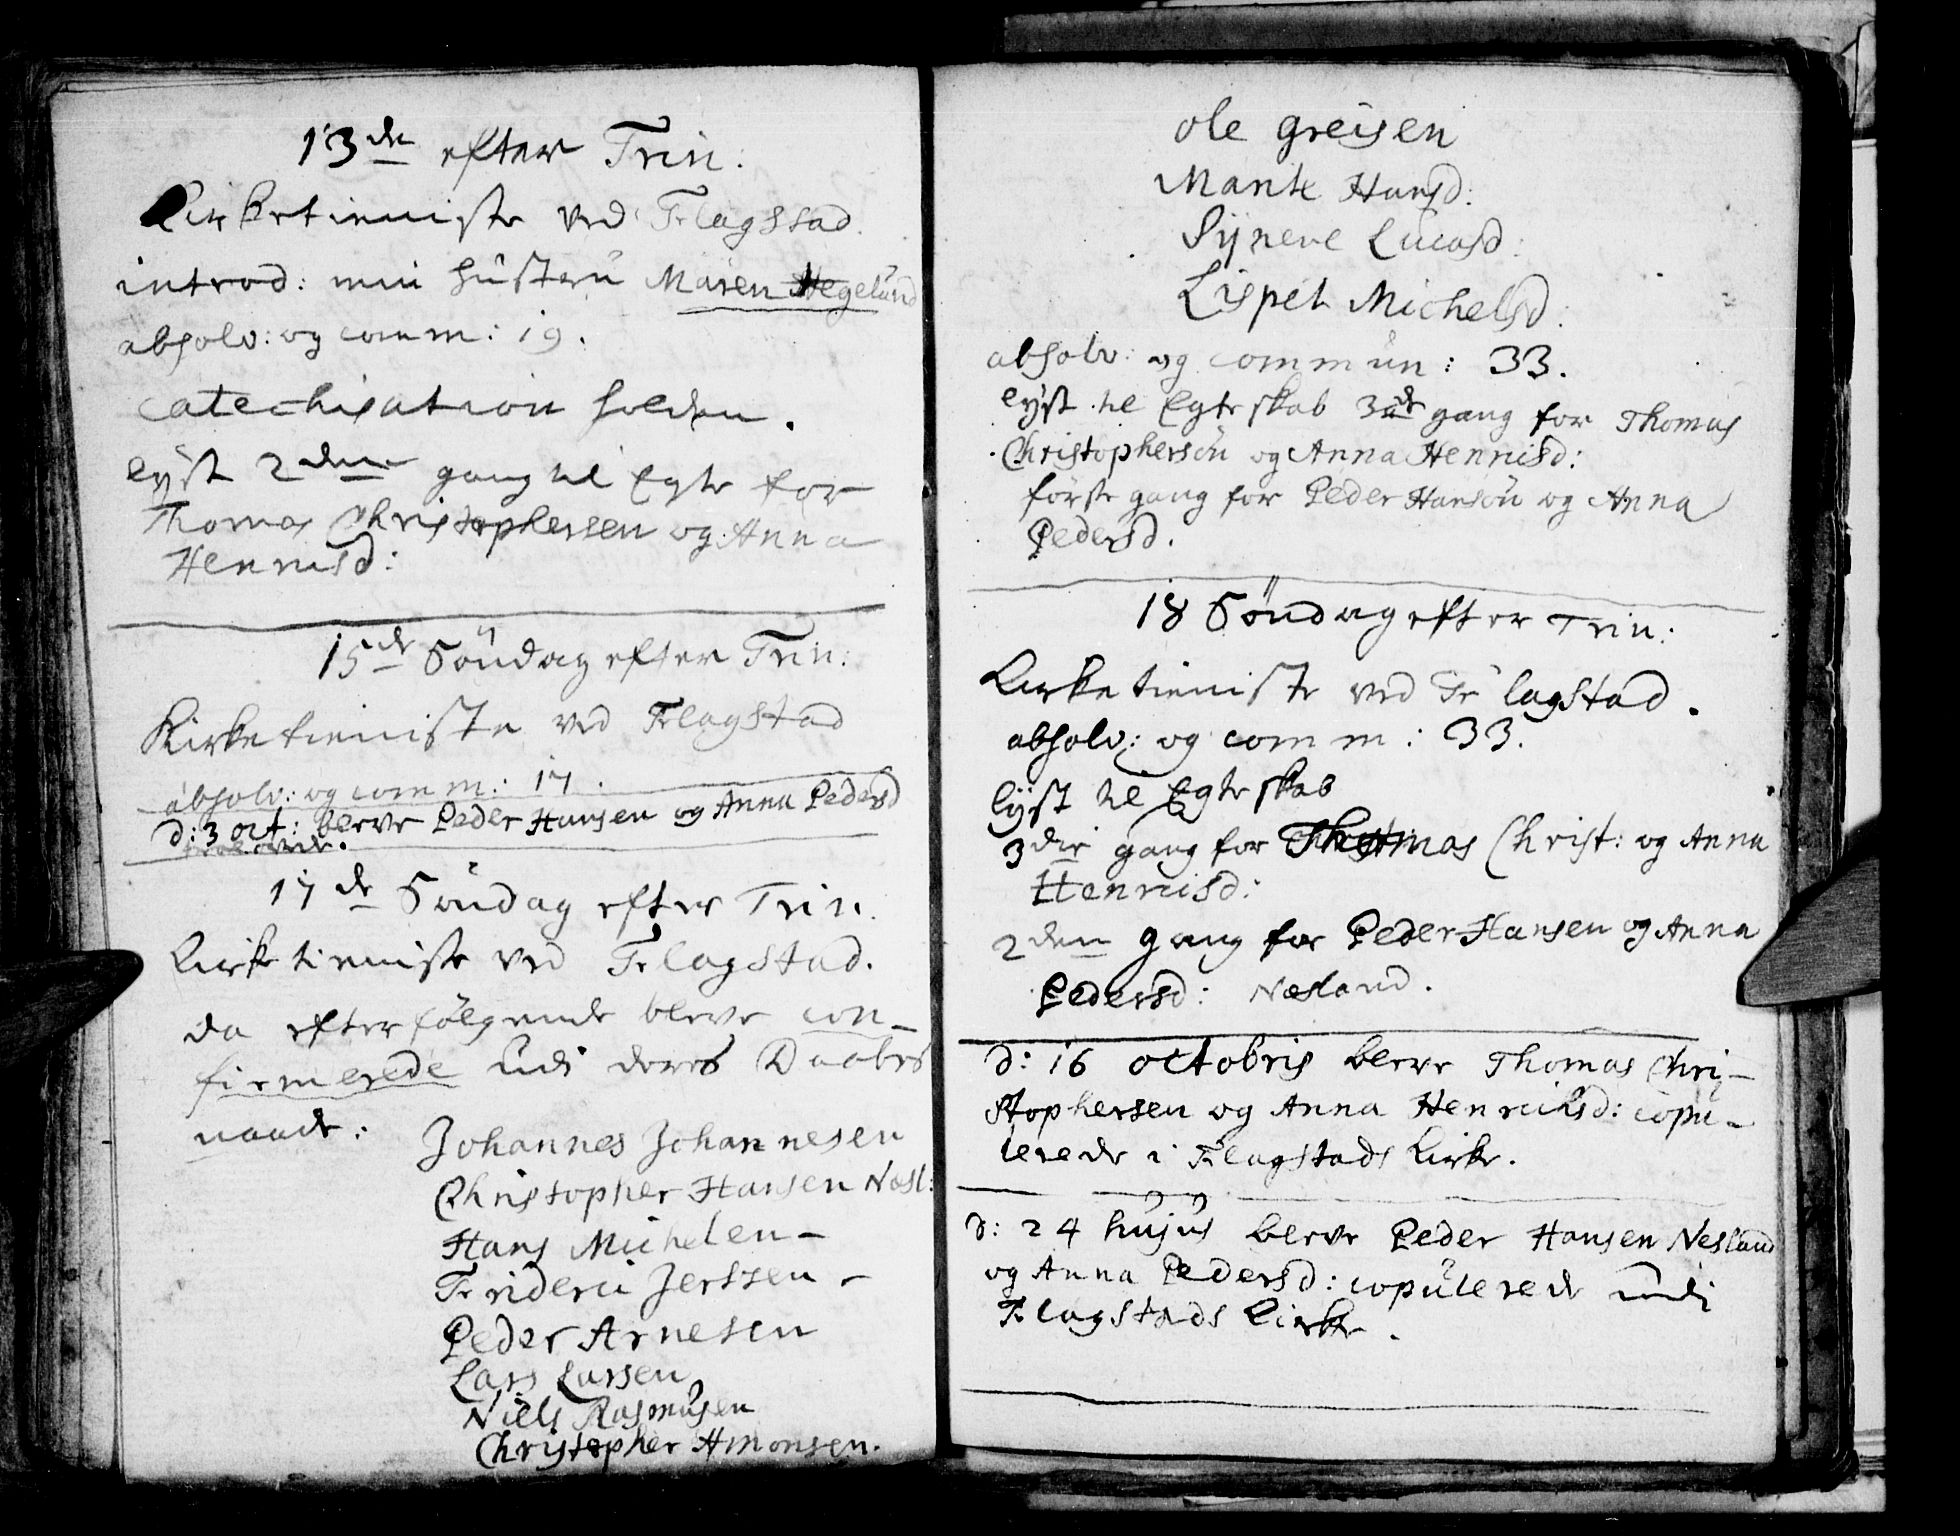 13de efter Trin:
Kirketieniste ved Flagstad.
introd: min hüstrü Maren Hegelund
absolv: og comm: 19.
Catechisation holden.
lyst 2den gang til Egte for
Thomas Christophersen og Anna
Henrichsd:
15de Söndag efter Trin:
Kirketieniste ved Flagstad
absolv: og comm: 17.
d: 3 oct: bleve Peder Hansen og Anna Pedersd
trolovede.
17de Söndag efter Trin.
Kirketieniste ved Flagstad.
da efterfölgende bleve con-
firmerede udi deres Daabes
naade:
Johannes Johannesen
Christopher Hansen Næsl:
Hans Michelen-
Friderici Jerssen-
Peder Arnesen
Lars Larsen
Niels Rasmüsen
Christopher Amonsen.
Ole Greisen
Marite Hansd:
Syneve Lucasd:
Lispet Michelsd:
absolv: og commün: 33.
lyst til Egteskab 3de gang for Thomas
Christophersön og Anna Henricsd:
förste gang for Peder Hansön og Anna
Pedersd.
18 Söndag efter Trin:
Kirketieniste ved Flagstad.
absolv: og comm: 33.
lyst til Egteskab
3die gang for Thomas Christ: og Anna
Henricsd:
2den gang for Peder Hansen og Anna
Pedersd: Næsland.
d: 16 octobris bleve Thomas Chri-
stophersen og Anna Henrichsd: copu-
lerede i Flagstads Kirke.
d: 24 hüjüs bleve Peder Hansen Nesland
og Anna Pedersd: copülerede udi
Flagstads Kirke.